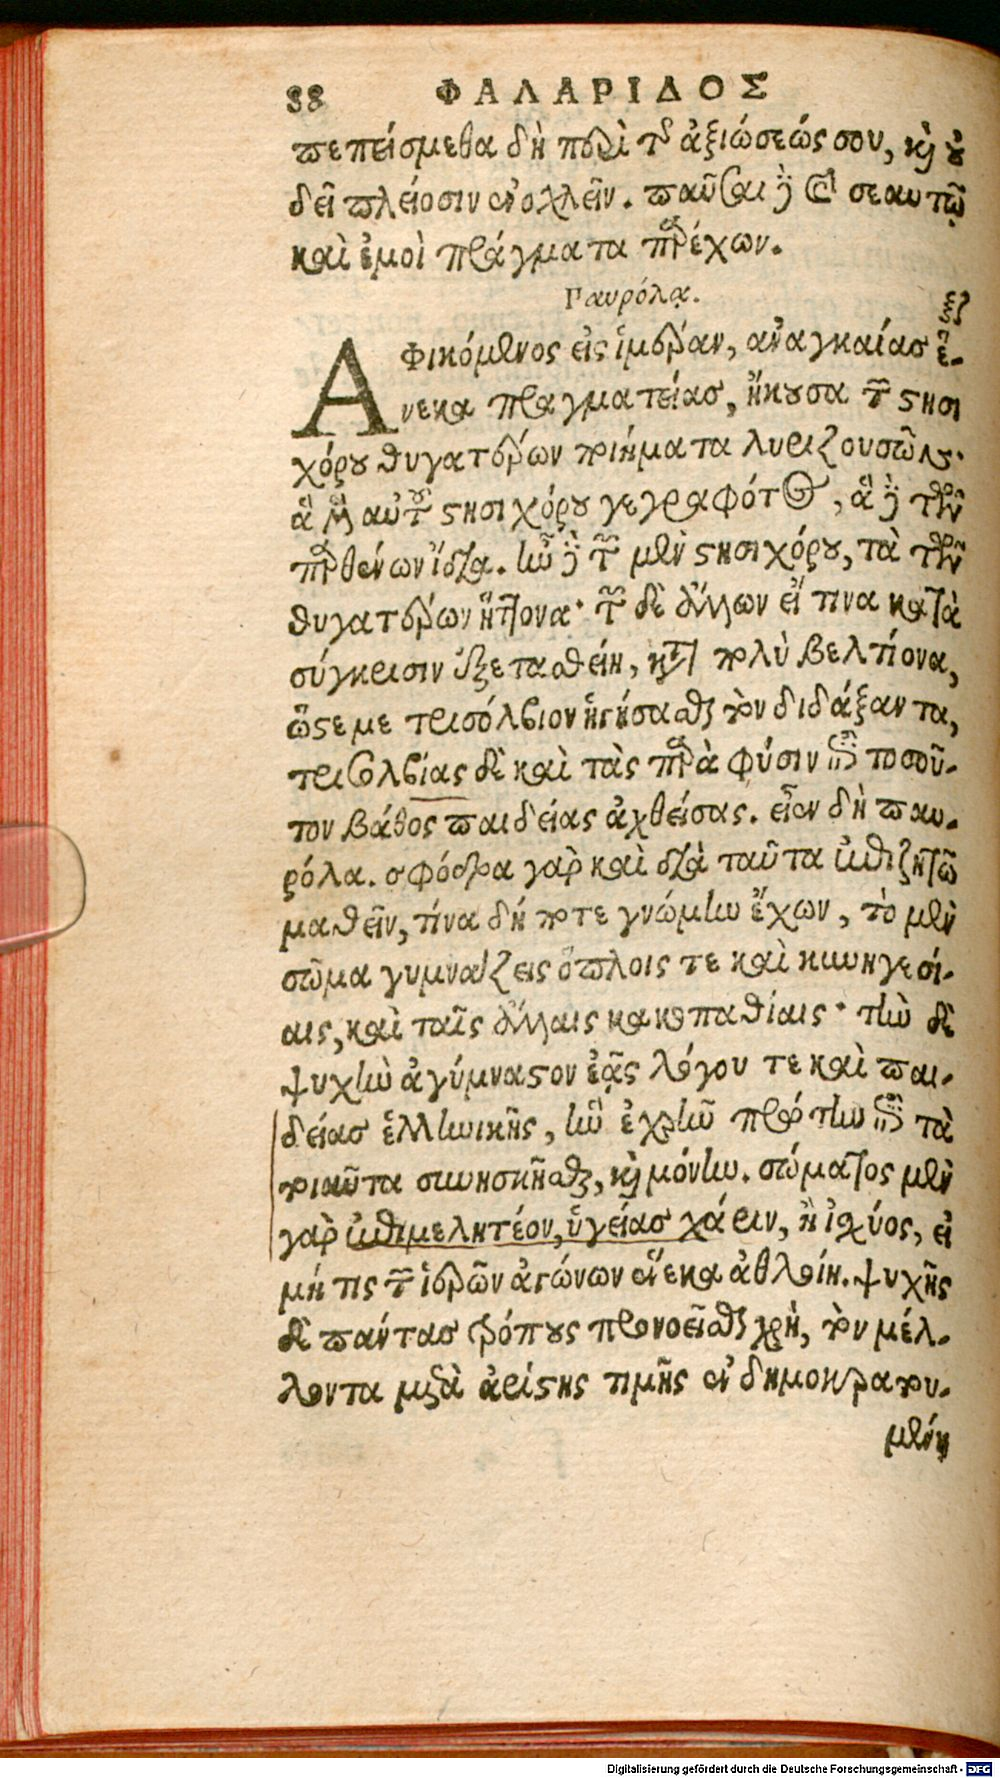 88 ΦΑΛΑΡΙΔΟΣ
πεπείσμεθα δὴ περὶ τῆς ἀξιώσεώς σου, καὶ οὐ
δεῖ πλείοσιν ἐνοχλεῖν. παῦσαι γὰρ καὶ σεαυτῷ
καὶ ἐμοὶ πράγματα παρέχων.
Γαυρόλᾳ.
ξζ
Αφικόμενος εἰς ἱμέραν, ἀναγκαίας ἕ-
νεκα πραγματείας, ἤκουσα τῶν στησι
χόρου θυγατέρων ποιήματα λυριζουσῶν·
ἃ μὲν αὐτοῦ στησιχόρου γεγραφότος, ἃ δὲ τῶν
παρθένων ἴδια. ἦν δὲ τῶν μὲν στησιχόρου, τὰ τῶν
θυγατέρων ἥττονα· τῶν δὲ ἄλλων εἴ τινα κατὰ
σύγκρισιν ἐξεταθείη, καὶ πολὺ βελτίονα,
ὥστε με τρισόλβιον ἡγήσασθαι τὸν διδάξαντα,
τρισολβίας δὲ καὶ τὰς παρὰ φύσιν ἐπὶ τοσοῦ-
τον βάθος παιδείας ἀχθείσας. εἶεν δὴ παυ-
ρόλα. σφόδρα γὰρ καὶ διὰ ταῦτα ἐπιζητῶ
μαθεῖν, τίνα δή ποτε γνώμην ἔχων, τὸ μὲν
σῶμα γυμνάζεις ὅπλοις τε καὶ κυνηγεσί-
αις, καὶ ταῖς ἄλλαις κακοπαθίαις· τὴν δὲ
ψυχὴν ἀγύμναστον ἐᾷς λόγου τε καὶ παι-
δείας ἑλληνικῆς, ἣν ἐχρῆν πρώτην ἐπὶ τὰ
τοιαῦτα συνησκῆσθαι, καὶ μόνην. σώματος μὲν
γὰρ ἐπιμελητέον, ὑγείας χάριν, ἢ ἰσχύος, εἰ
μή τις τῶν ἱερῶν ἀγώνων ἕνεκα ἀθλοίη. ψυχῆς
δὲ πάντας τρόπους προνοεῖσθαι χρὴ, τὸν μέλ-
λοντα μετὰ ἀρίστης τιμῆς ἐν δημοκρατου-
μένῃ
Digitalisierung gefördert durch die Deutsche Forschungsgemeinschaft - DFG